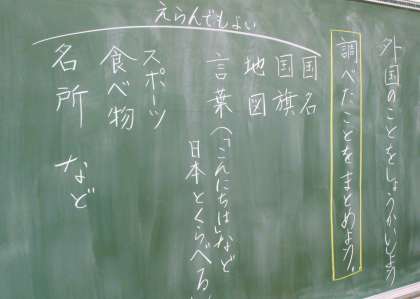 外国のことをしょうかいしよう
調べたことをまとめよう。
えらんでもよい
国名
国旗
地図
言葉（「こんにちは」など
日本とくらべる
スポーツ
食べ物
名所 など